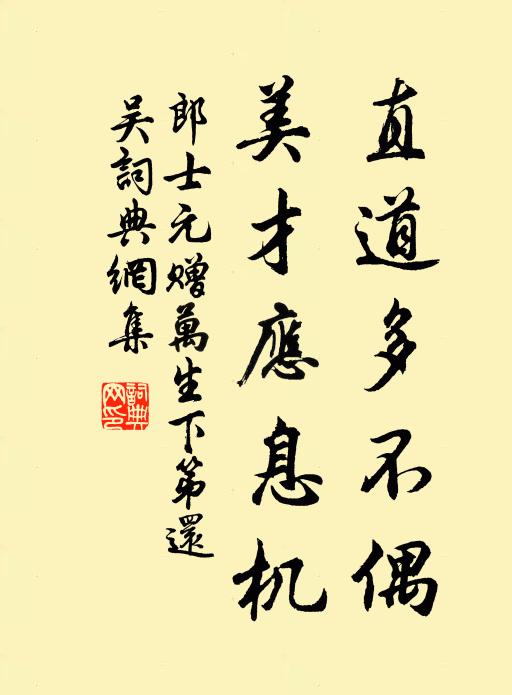 直道多不偶
美才應息机
郎士元贈萬生下第還
吴詞典網集
詞典网印